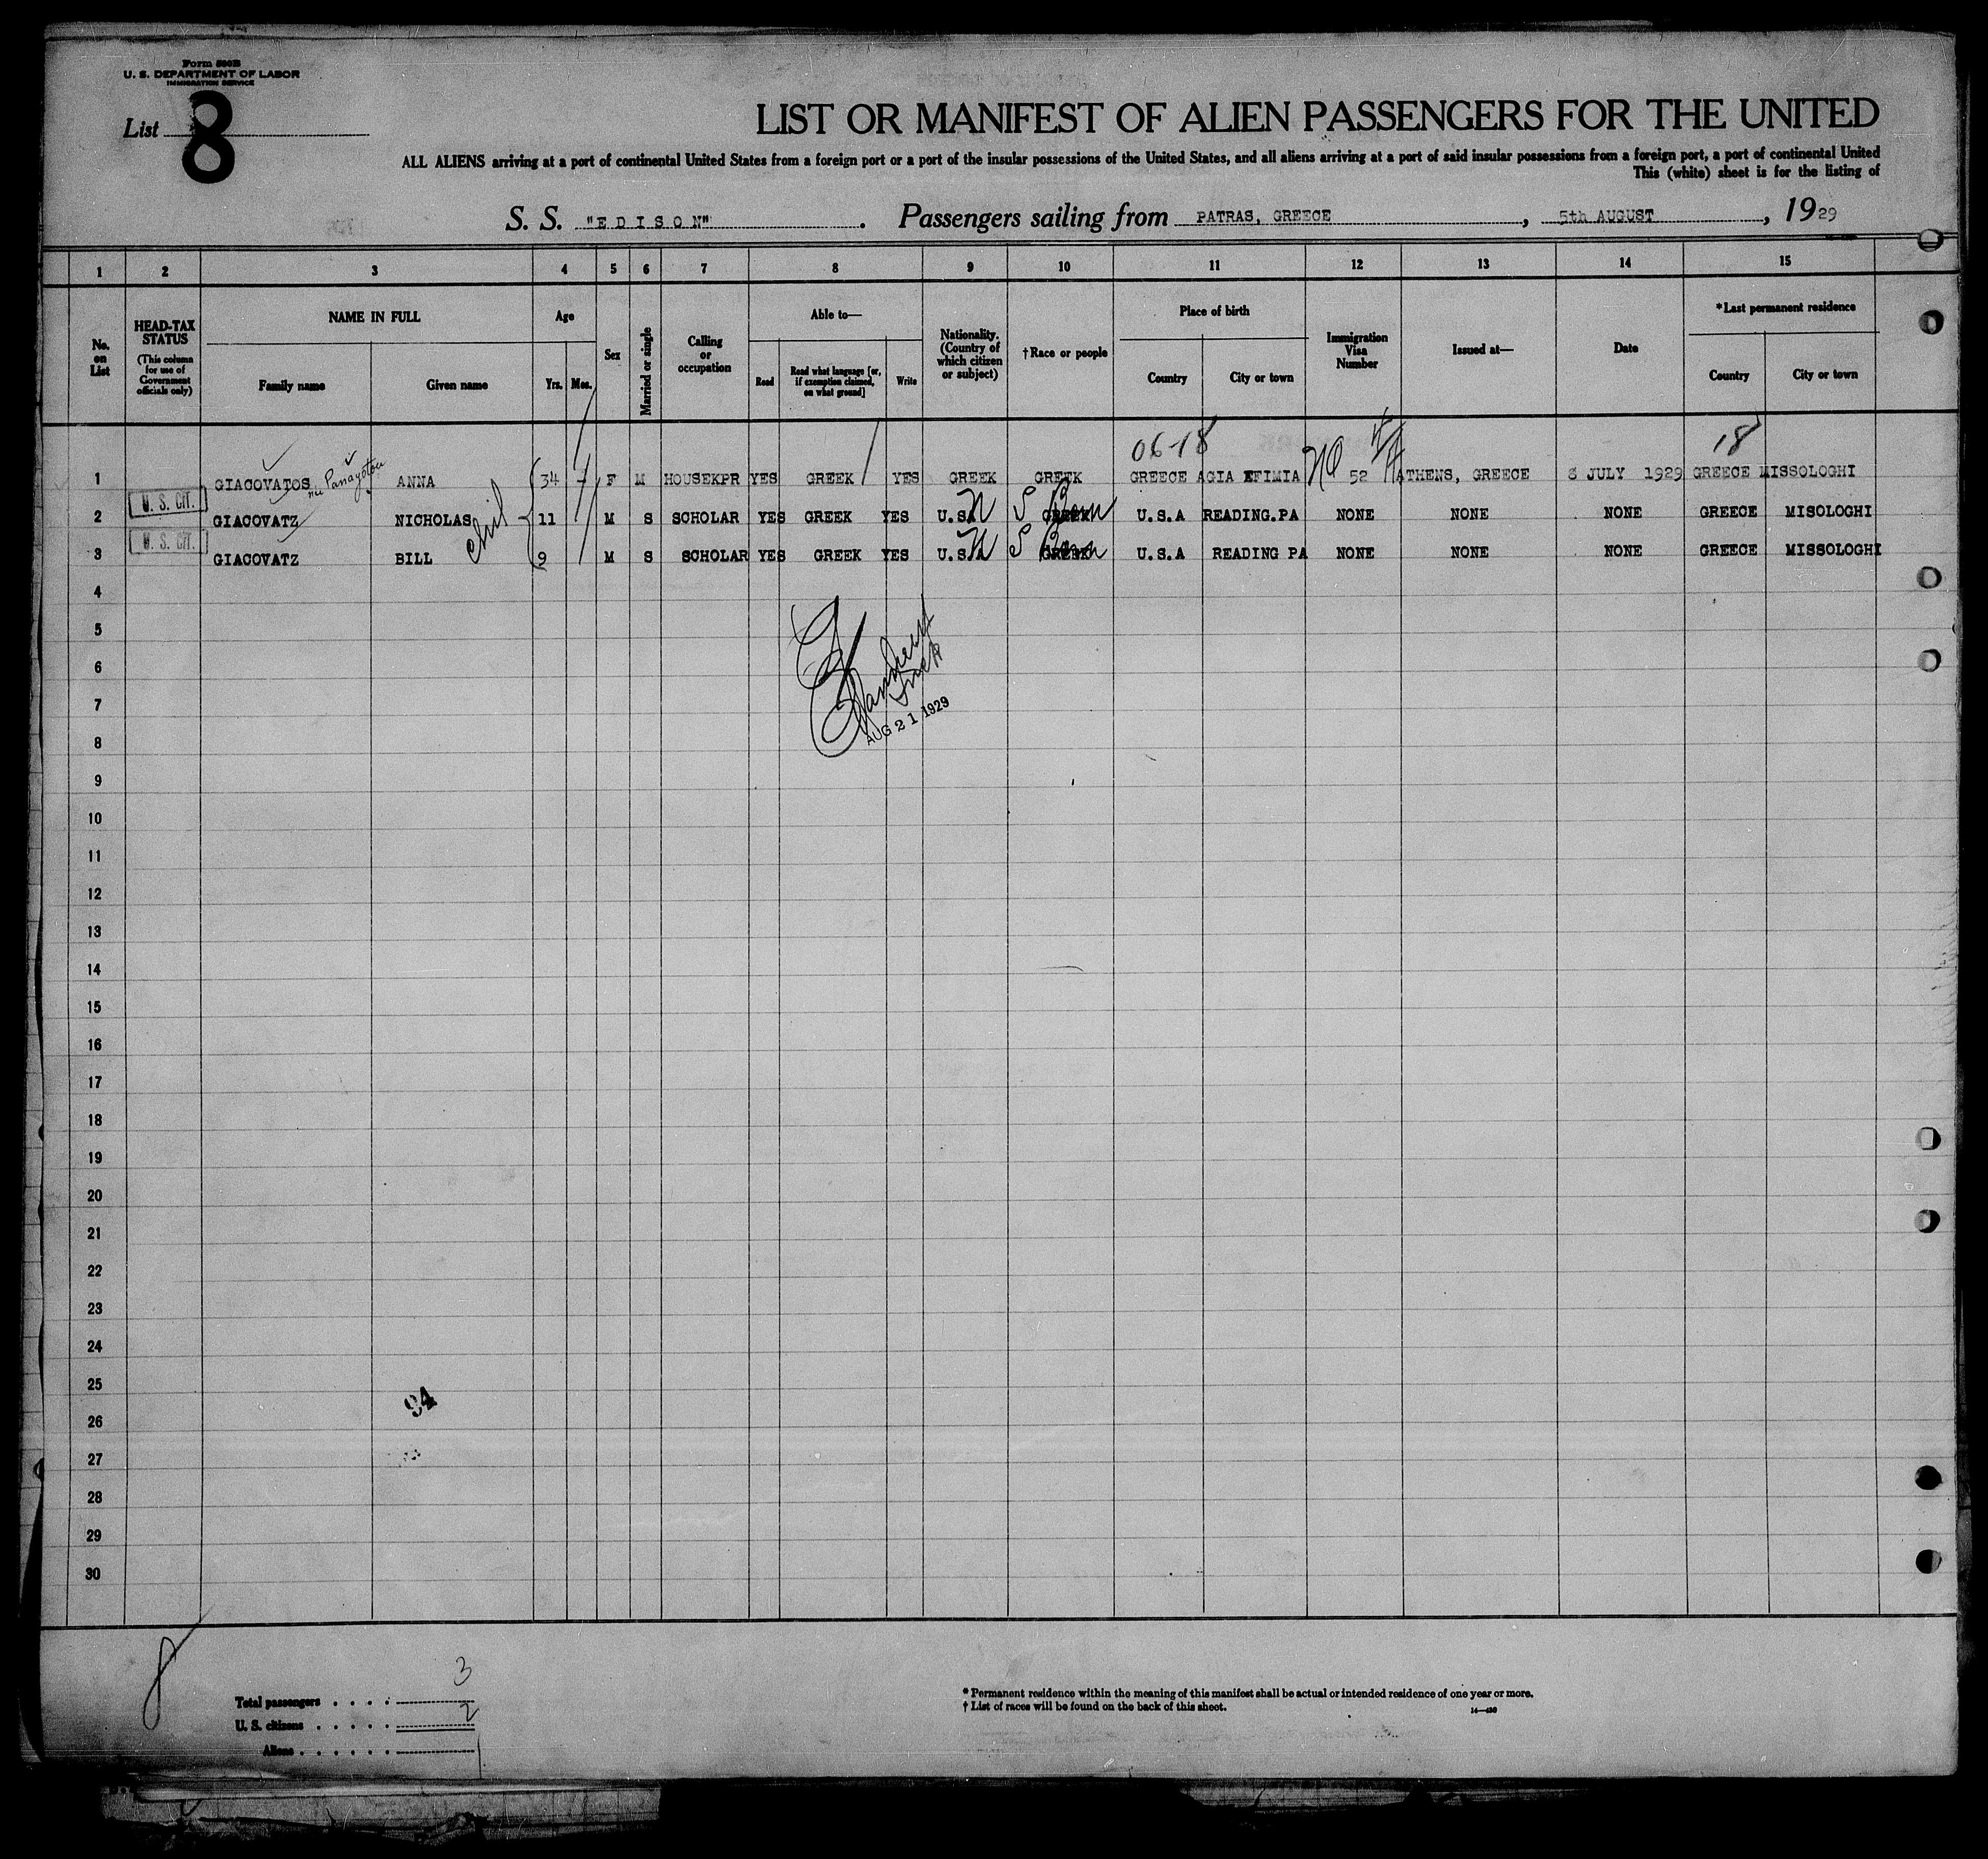 Form 500B
U. S. DEPARTMENT OF LABOR
IMMIGRATION SERVICE
List 8
LIST OR MANIFEST OF ALIEN PASSENGERS FOR THE UNITED
ALL ALIENS arriving at a port of continental United States from a foreign port or a port of the insular possessions of the United States, and all aliens arriving at a port of said insular possessions from a foreign port, a port of continental United
This (white) sheet is for the listing of
S. S. "EDISON". Passengers sailing from PATRAS, GREECE, 5th AUGUST, 1929
1 2 3 4 5 6 7 8 9 10 11 12 13 14 15
No. on List
HEAD-TAX STATUS (This column for use of Government officials only)
NAME IN FULL
Family name
Given name
Age
Yrs. Mos.
Sex
Married or single
Calling or occupation
Able to—
Read
Read what language [or, if exemption claimed, on what ground]
Write
Nationality. (Country of which citizen or subject)
†Race or people
Place of birth
Country
City or town
Immigration Visa Number
Issued at—
Date
*Last permanent residence
Country
City or town
06-18
18
1 GIACOVATOS nee Panayotou ANNA 34 F M HOUSEKPR YES GREEK YES GREEK GREEK GREECE AGIA EFIMIA NQ 52 ATHENS, GREECE 8 JULY 1929 GREECE MISSOLOGHI
2 U. S. CIT. GIACOVATZ NICHOLAS 11 M S SCHOLAR YES GREEK YES U.S.A GREEK U.S.A READING.PA NONE NONE NONE GREECE MISOLOGHI
3 U. S. CIT. GIACOVATZ BILL 9 M S SCHOLAR YES GREEK YES U.S.A GREEK U.S.A READING PA NONE NONE NONE GREECE MISSOLOGHI
N S Born
N S Born
4
5
6
7
AUG 21 1929
8
9
10
11
12
13
14
15
16
17
18
19
20
21
22
23
24
25
94
26
27
28
29
30
8
Total passengers . . . . 3
U. S. citizens . . . . . 2
Aliens . . . . . . 1
* Permanent residence within the meaning of this manifest shall be actual or intended residence of one year or more.
† List of races will be found on the back of this sheet.
14—430